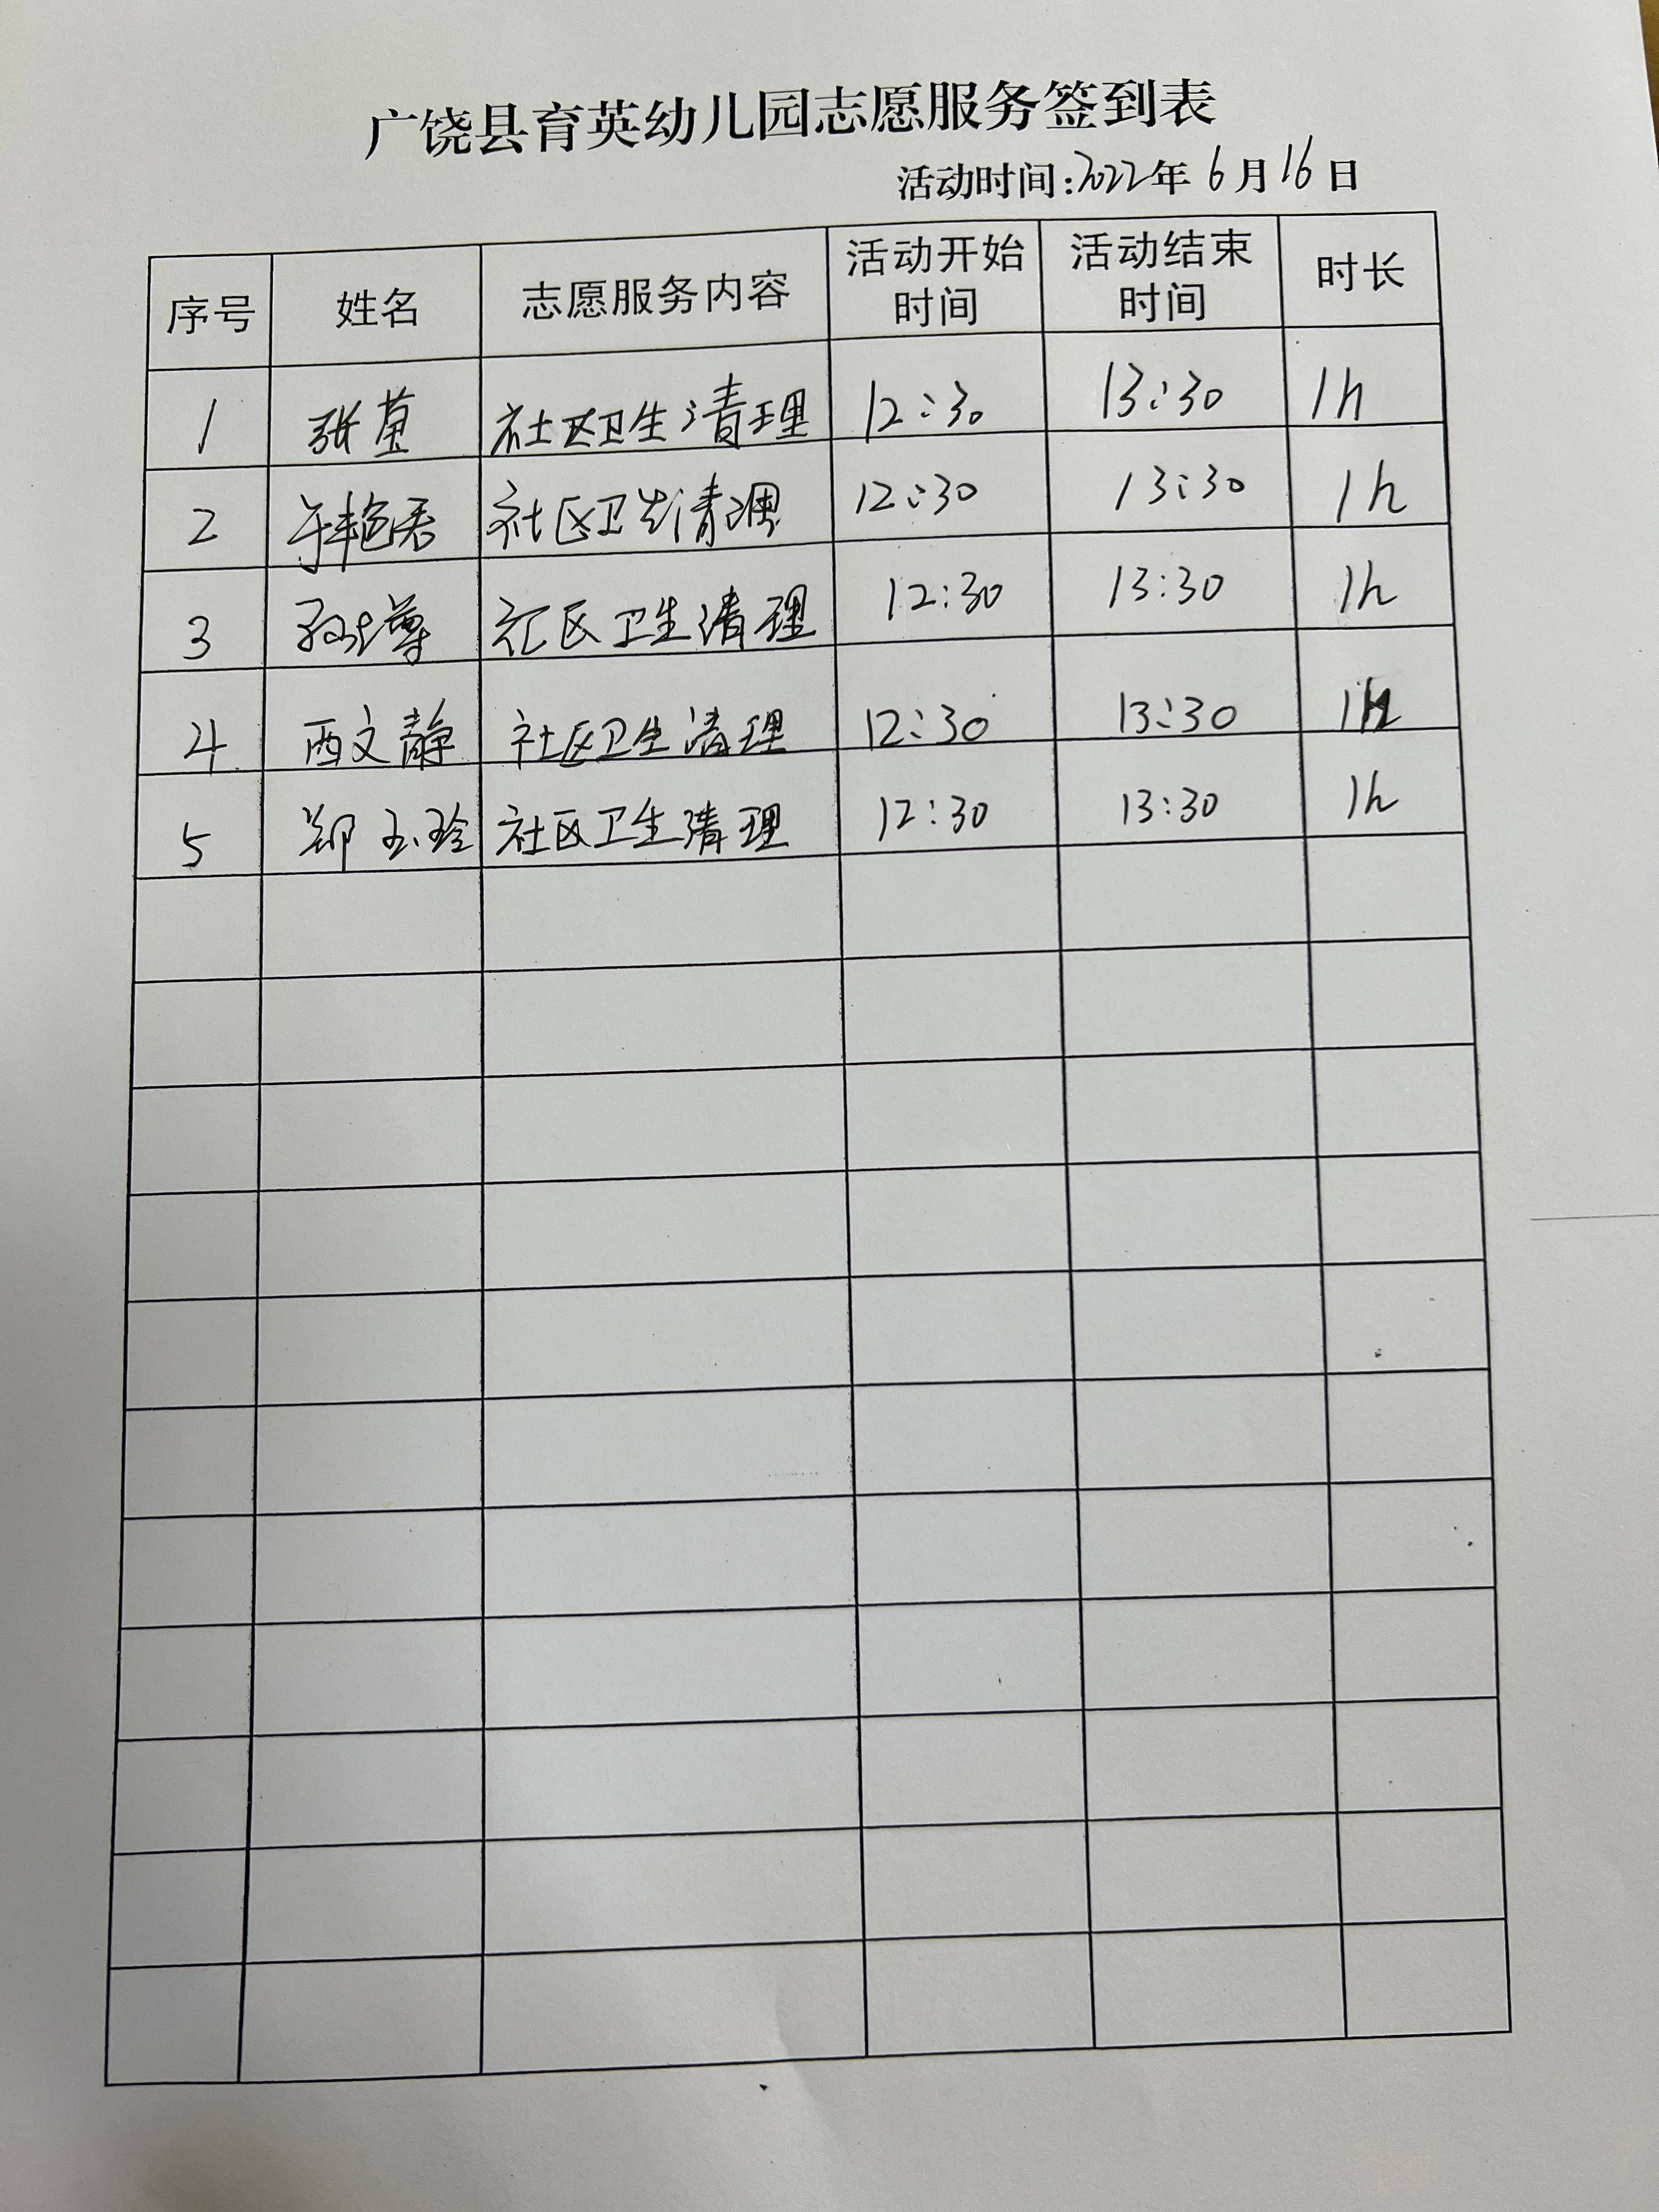 广饶县育英幼儿园志愿服务签到表
活动时间:2022年6月16日
序号 姓名 志愿服务内容 活动开始时间 活动结束时间 时长
1 张 社区卫生清理 12:30 13:30 1h
2 艳春 社区卫生清理 12:30 13:30 1h
3 社区卫生清理 12:30 13:30 1h
4 西文静 社区卫生清理 12:30 13:30 1h
5 郑玉玲 社区卫生清理 12:30 13:30 1h